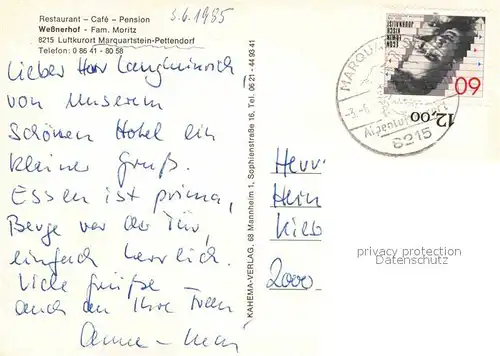 Restaurant – Café – Pension
Weßnerhof - Fam. Moritz
8215 Luftkurort Marquartstein-Pettendorf
Telefon: 0 86 41 - 80 58
3.6.1985
Lieber Herr Langheinrich,
von unserem
schönen Hotel ein
kleiner Gruß.
Essen ist prima,
Berge vor der Tür,
einfach herrlich.
Viele Grüße –
auch an Ihre Frau
Anne-
KAHEMA-VERLAG, 68 Mannheim 1, Sophienstraße 16, Tel. 06 21 - 44 93 41
Herrn
Hein
2000
60
12,00
MARQUA
8215
privacy protection
Datenschutz